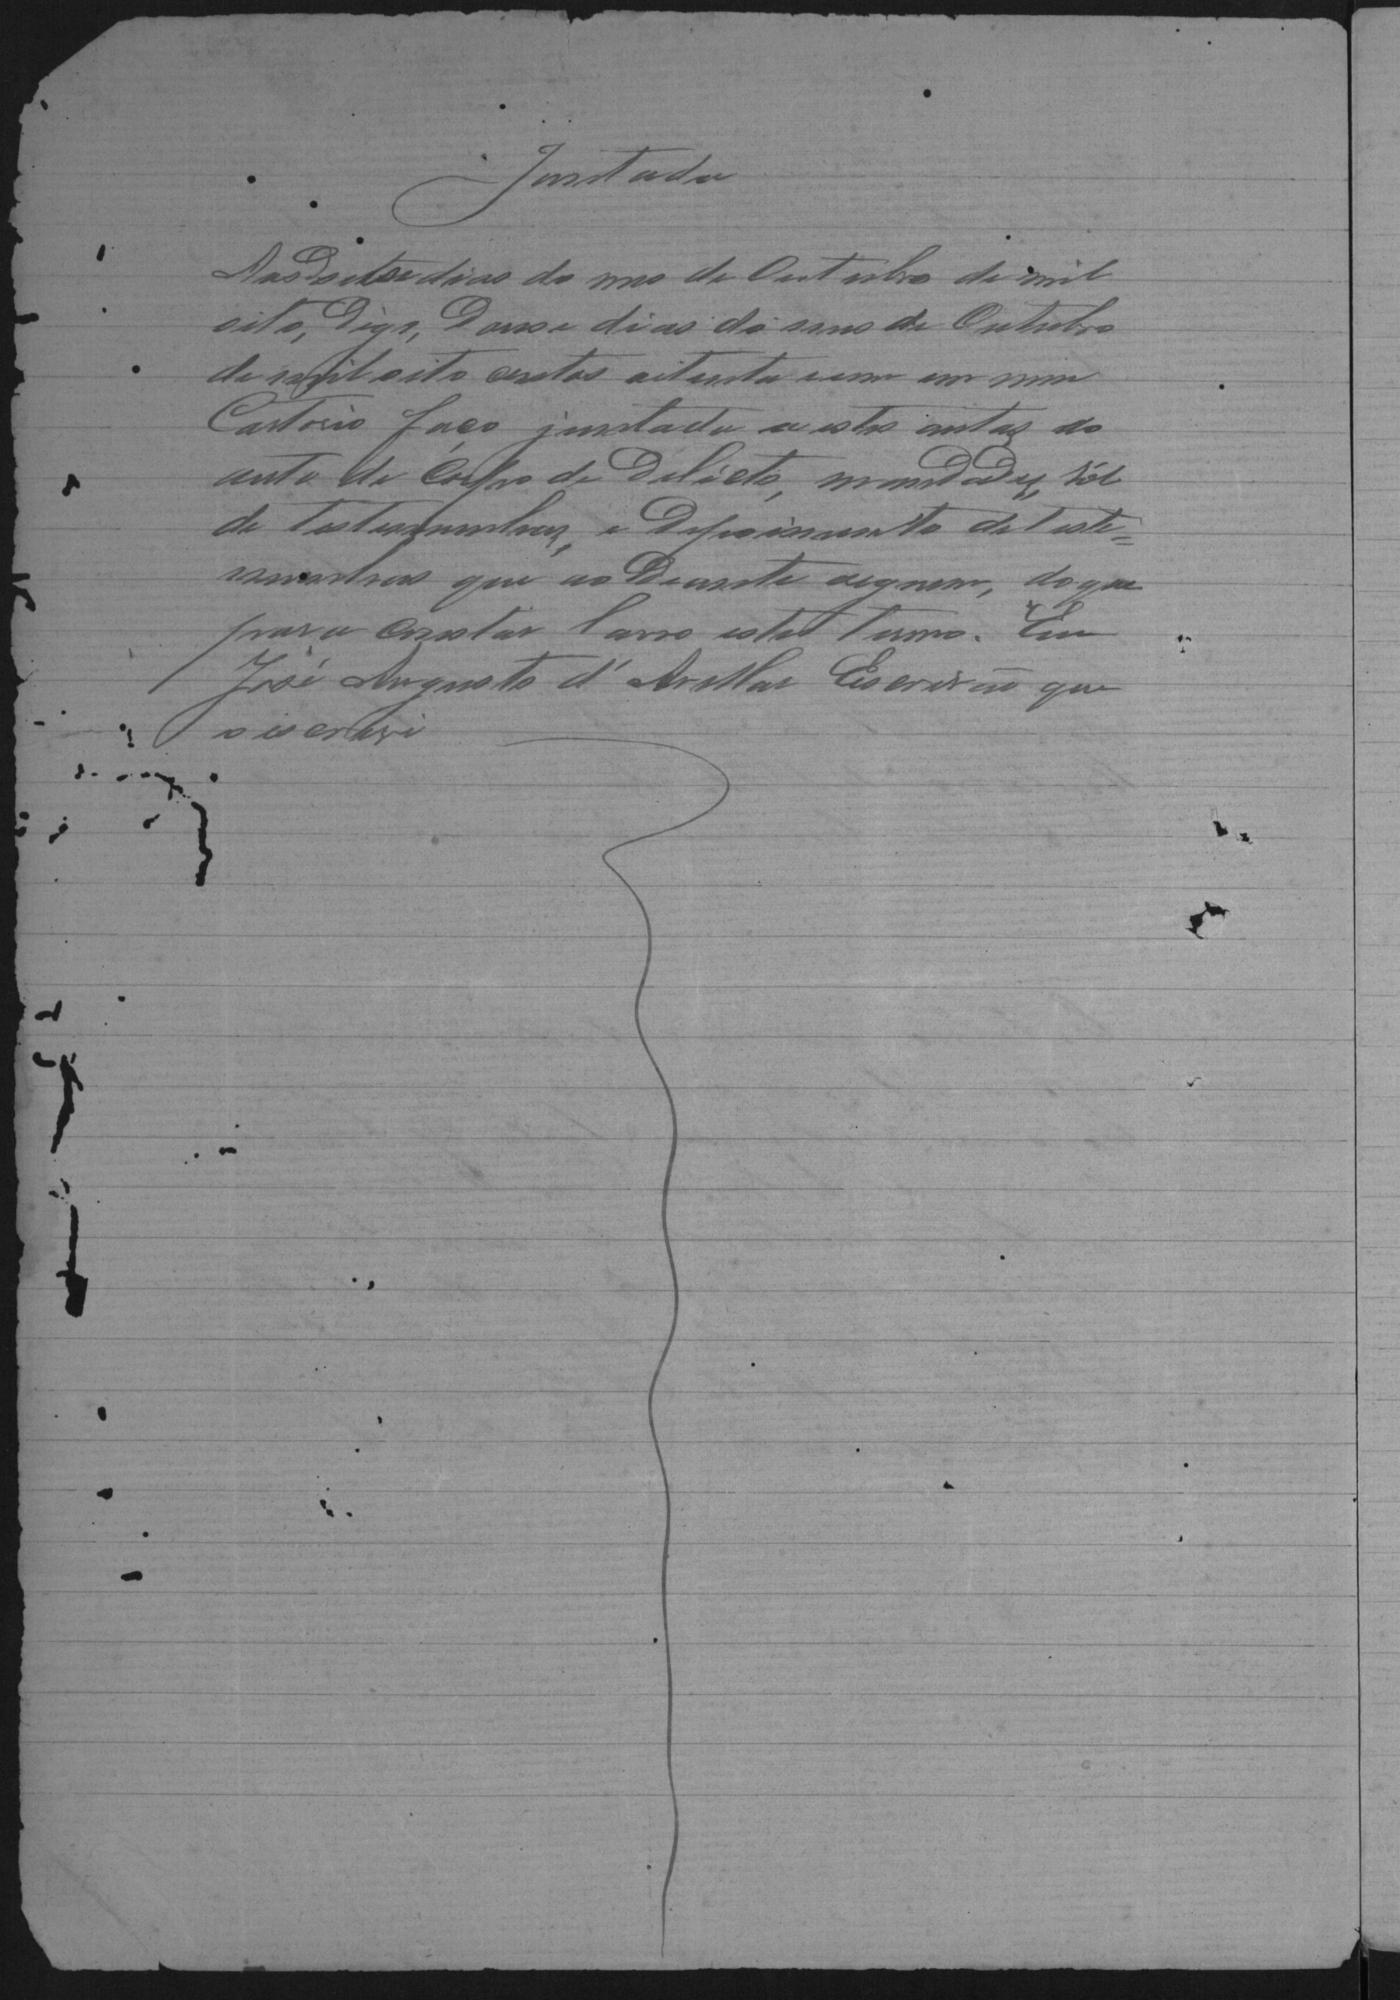 Juntada
Aos Dezessete dias do mes de Outubro de mil
oito, Digo, Dousse dias do mes de Outubro
de mil oito centos oitenta e um em meu
Cartorio faço juntada a estes autos do
auto de Corpo de Delicto, mandados, ról
de testemunhas, e Depoimento de teste=
munhas que ao Deante seguem, do que
para constar lavro este termo. Eu
José Augusto d' Avellar Escrivão que
o escrevi